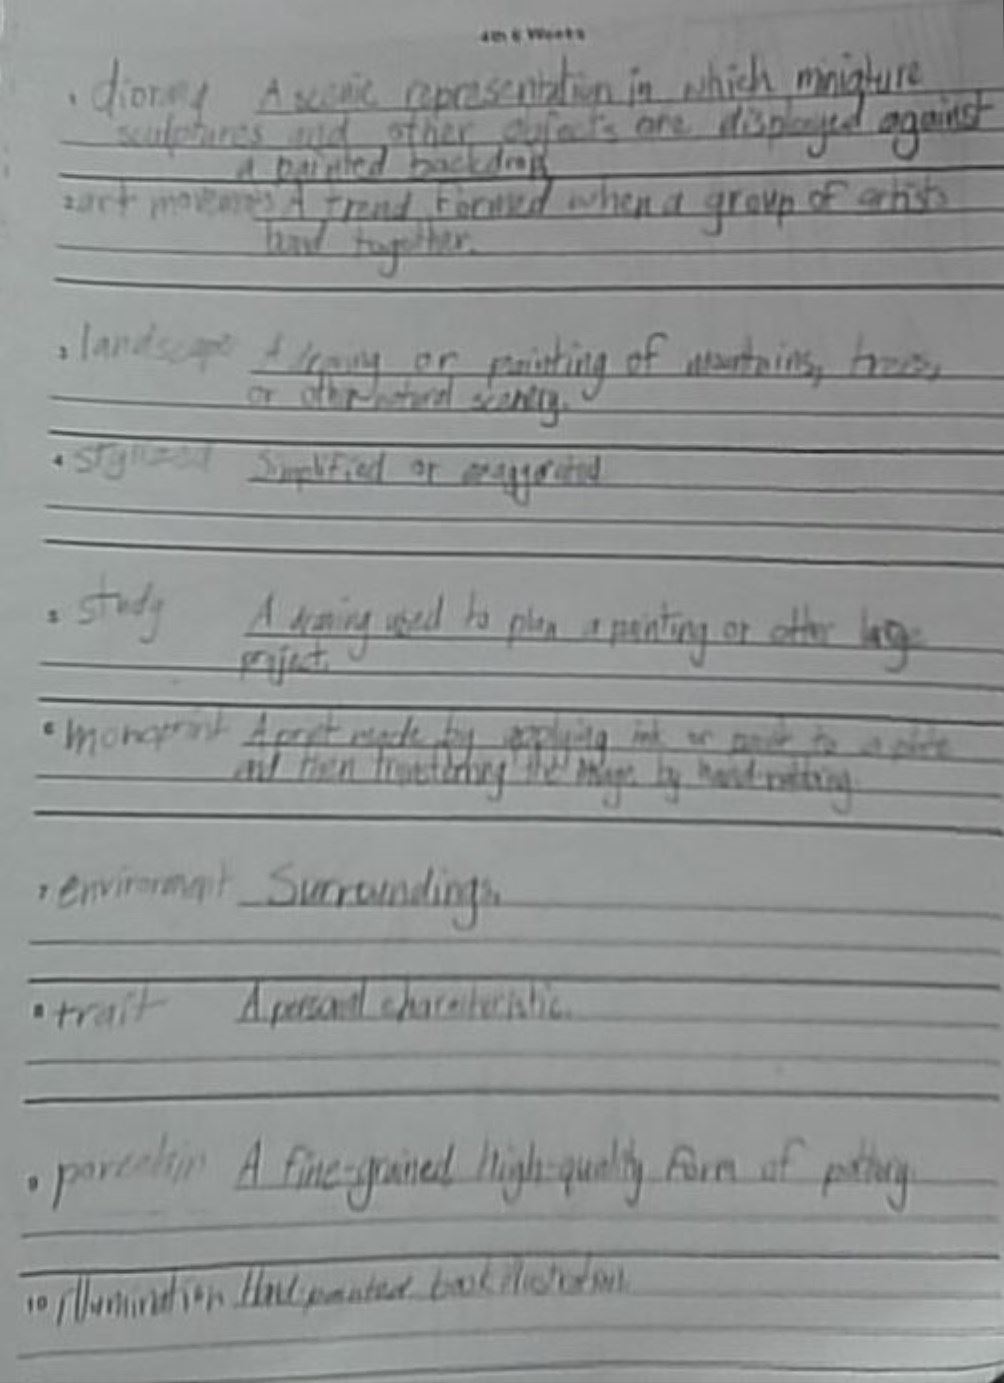 4th 6 Weeks
1 diorama A scenic representation in which miniature
sculptures and other objects are displayed against
a painted backdrop
2 art movements A trend formed when a group of artists
band together.
3 landscape A drawing or painting of mountains, trees,
or other natural scenery.
4 stylized Simplified or exaggerated
5 study A drawing used to plan a painting or other large
project.
6 monoprint A print made by applying ink or paint to a plate
and then transferring the image by hand-rubbing.
7 environment Surroundings.
8 trait A personal characteristic.
9 porcelain A fine-grained high-quality form of pottery.
10 illumination Hand painted book illustration